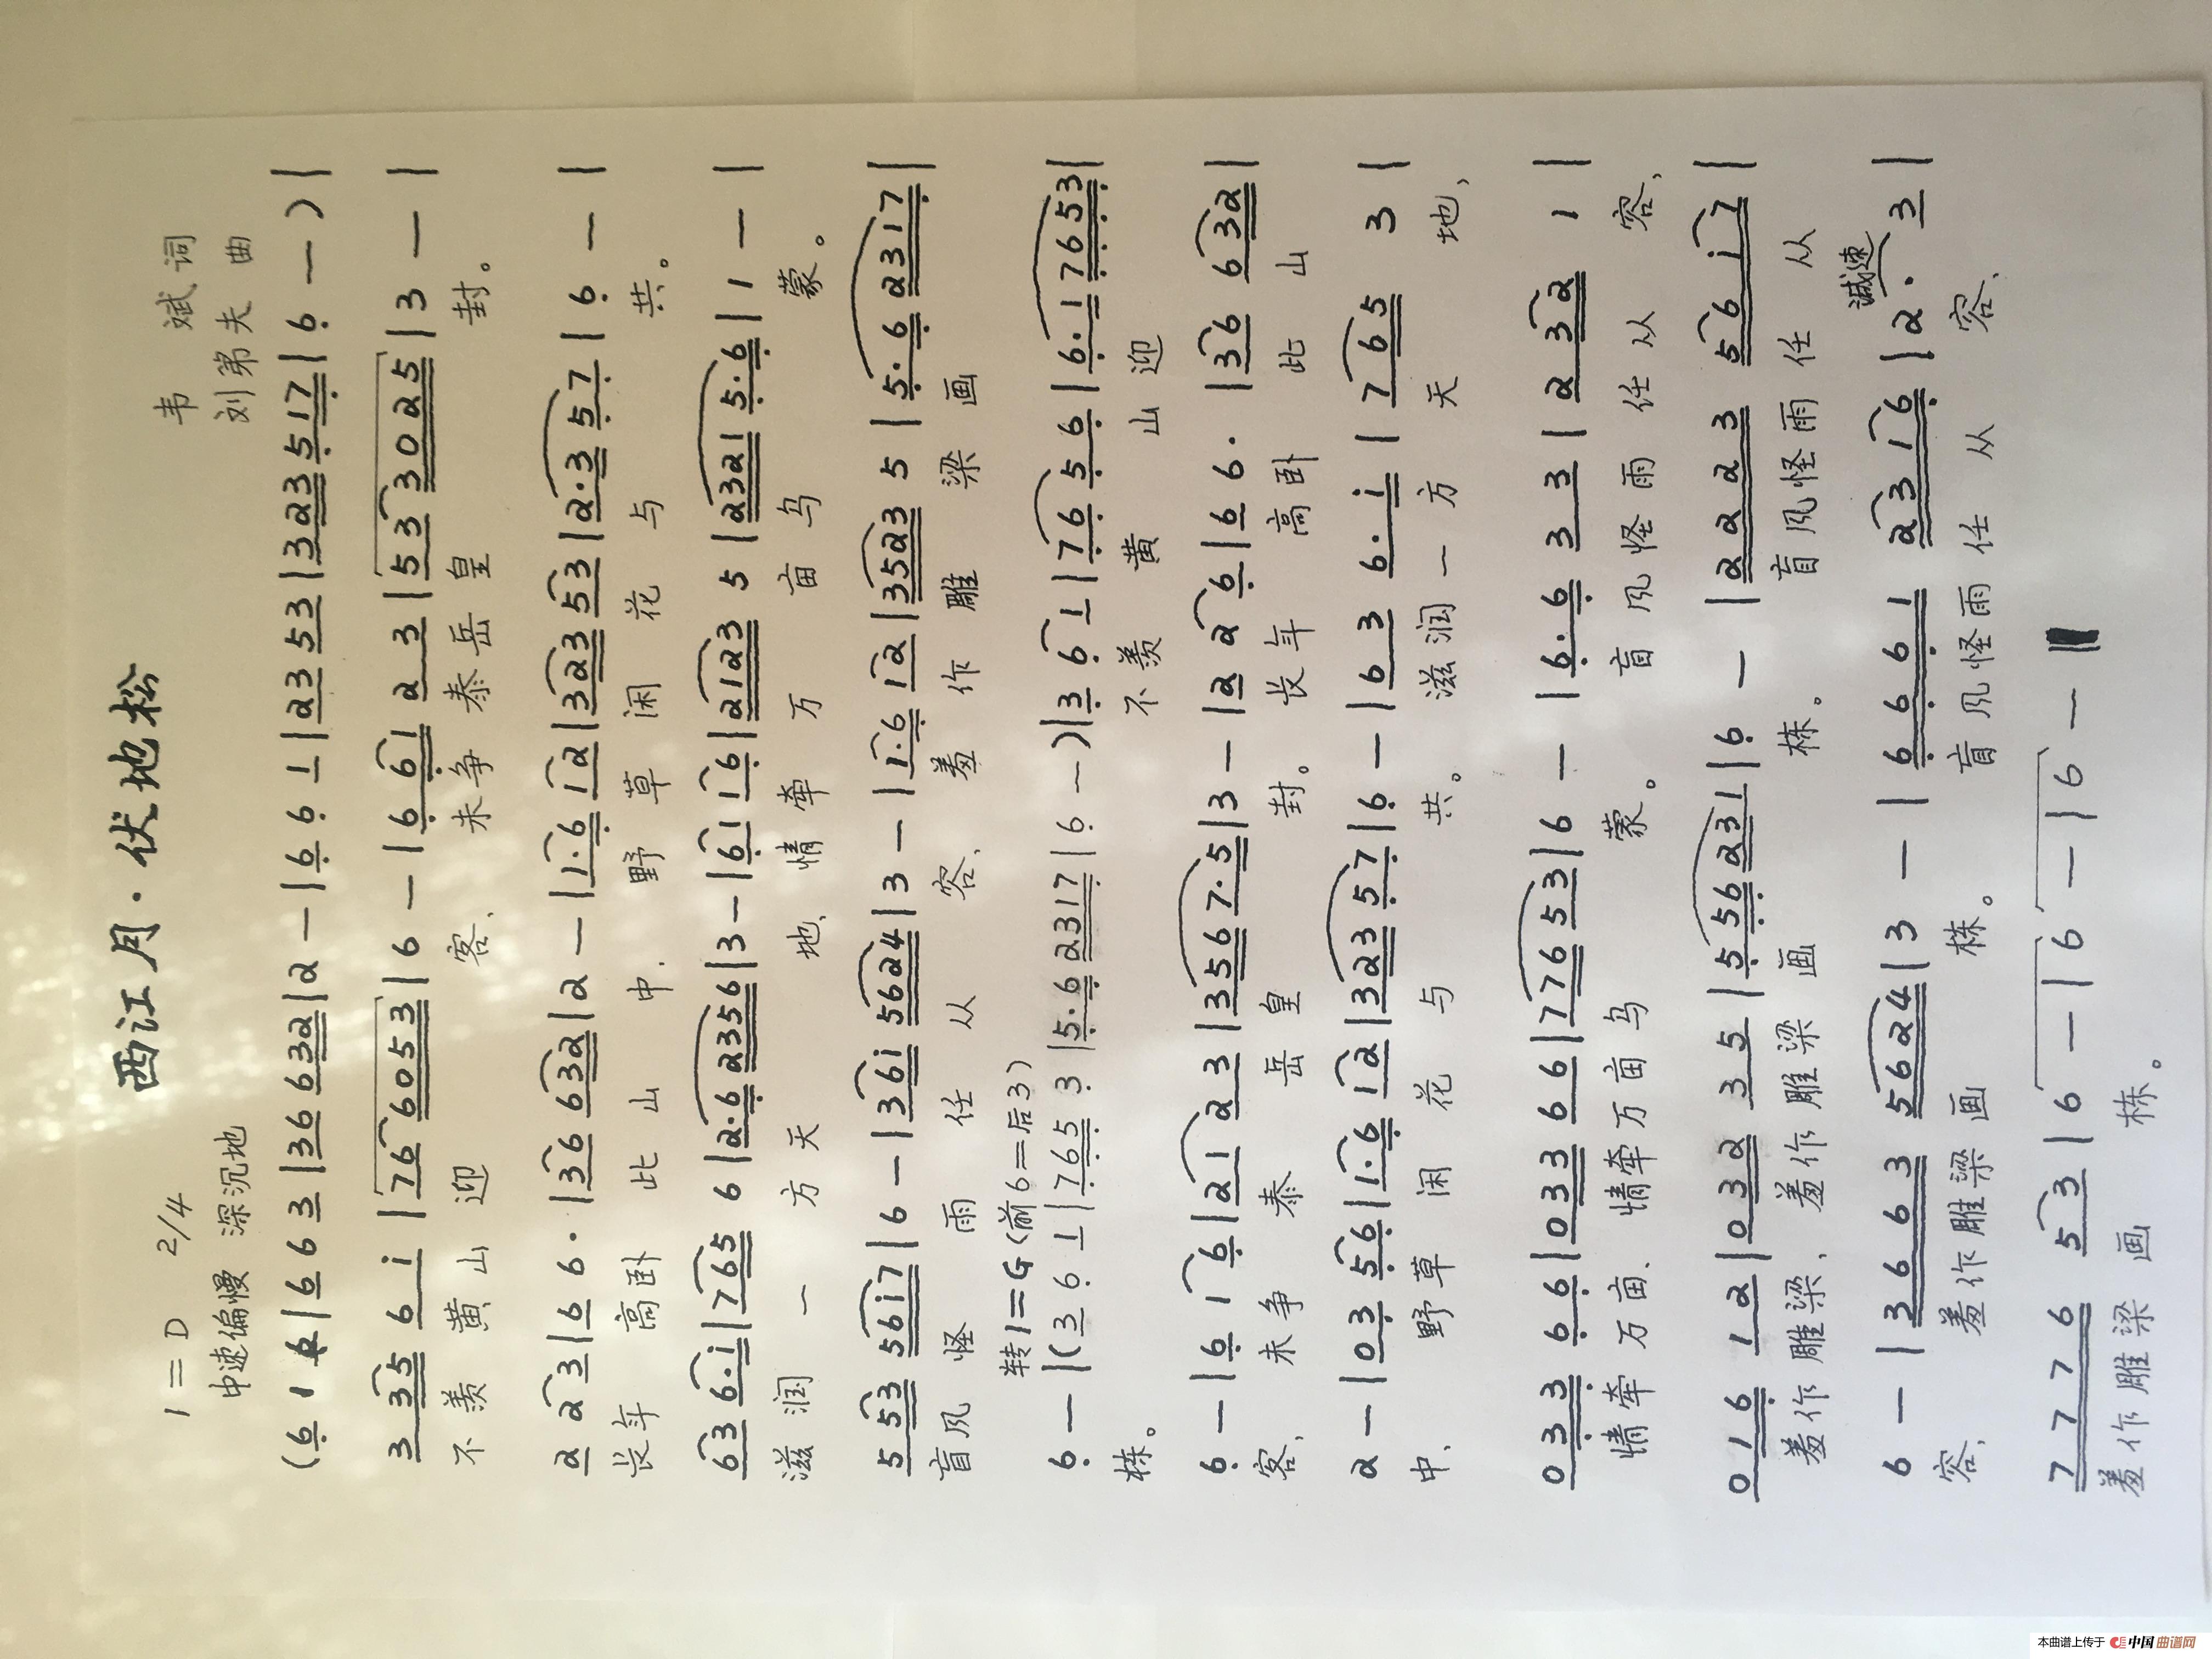 西江月·伏地松
1=D 2/4
韦 斌 词
中速偏慢 深沉地
刘第夫 曲
(6 1 6 | 6 6 3 | 3 6 6 3 2 | 2 — | 6 6 1 | 2 3 5 3 | 3 2 3 5 1 7 | 6 — ) |
3 3 5 6 i | 7 6 6 0 5 3 | 6 — | 6 6 1 2 3 | 5 3 3 0 2 5 | 3 — |
不羡黄山 迎 客、 未争泰岳皇 封。
2 2 3 | 6 6 · | 3 6 6 3 2 | 2 — | 1 · 6 1 2 | 3 2 3 5 3 | 2 · 3 5 7 | 6 — |
长年 高卧 此 山 中、 野 草 闲 花 与 共。
6 3 6 · i | 7 6 5 6 | 2 · 6 2 3 5 6 | 3 — | 6 1 1 6 | 2 1 2 3 5 | 2 3 2 1 5 · 6 | 1 — |
滋润 一 方 天 地、 情 牵 万 亩 乌 蒙。
5 5 3 5 6 i 7 | 6 — | 3 6 i 5 6 2 4 | 3 — | 1 · 6 1 2 | 3 5 2 3 5 | 5 · 6 2 3 1 7 |
盲风 怪 雨 任 从 容、 羞 作 雕 梁 画
转1=G(前6=后3)
6 — | (3 6 1 | 7 6 5 3 | 5 · 6 2 3 1 7 | 6 — ) | 3 6 1 | 7 6 5 6 | 6 · 1 7 6 5 3 |
栋。 不 羡 黄 山 迎
6 — | 6 1 6 | 2 1 2 3 | 3 5 6 7 · 5 | 3 — | 2 2 6 | 6 6 · | 3 6 6 3 2 |
客、 未 争 泰 岳 皇 封。 长年 高卧 此 山
2 — | 0 3 5 6 | 1 · 6 1 2 | 3 2 3 5 7 | 6 — | 6 3 6 · i | 7 6 5 3 |
中、 野草 闲 花 与 共。 滋润一方 天 地、
0 3 3 6 6 | 0 3 3 6 6 | 7 7 6 5 3 | 6 — | 6 · 6 3 3 | 2 3 2 1 |
情牵万亩、 情牵万亩乌 蒙。 盲风怪雨任从 容、
0 1 6 1 2 | 0 3 2 3 5 | 5 5 6 2 3 1 | 6 — | 2 2 2 3 5 6 i 7 |
羞作雕梁、 羞作雕梁画 栋。 盲风怪雨任 从
减速
6 — | 3 6 6 3 5 6 2 4 | 3 — | 6 6 6 1 2 3 1 6 | 2 · 3 |
容、 羞作雕梁画 栋。 盲风怪雨任 从 容、
7 7 7 6 5 3 | 6 — | 6 — | 6 — ‖
羞作雕梁画 栋。
本曲谱上传于 中国曲谱网